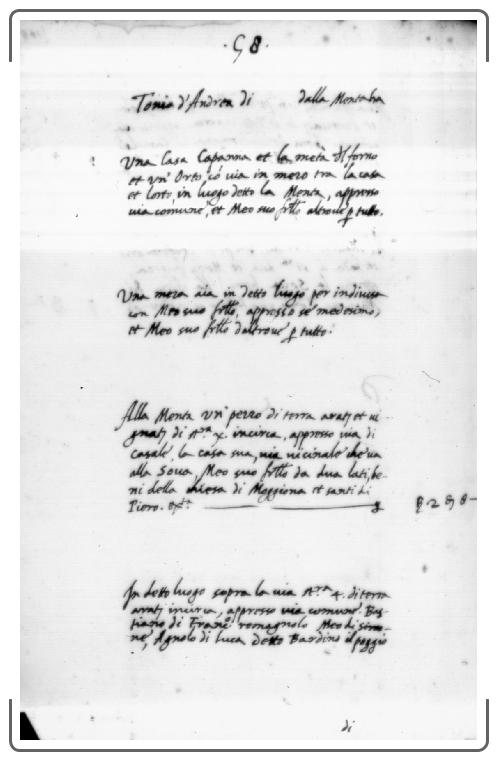 . 58.
Tonia d'Andrea di dalla Menta
Una Casa Capanna et la metà del forno
et un' Orto, cō via in mezo tra la casa
et l'orto, in luogo detto la Menta, appresso
via comune, et Meo suo frłło altroue p tutto.
Una meza aia in detto luogo per indiuisa
con Meo suo frłło, appresso se medesimo,
et Meo suo frłło d'altroue p tutto.
Alla Menta un' pezzo di terra arat; et ui
gnat; di st.ra x. incirca, appresso uia di
casale, la casa sua, uia uicinale che ua
alla Soua, Meo suo frłło da dua lati, be-
ni della chiesa di Moggiona et santi di
Piero.
In detto luogo sopra la uia st.ra 4. di terra
arat; incirca, appresso uia comune. Bas
tiano di Franc.o romagnolo Meo di simo-
ne, Agnolo di luca detto Bardino il poggio
di